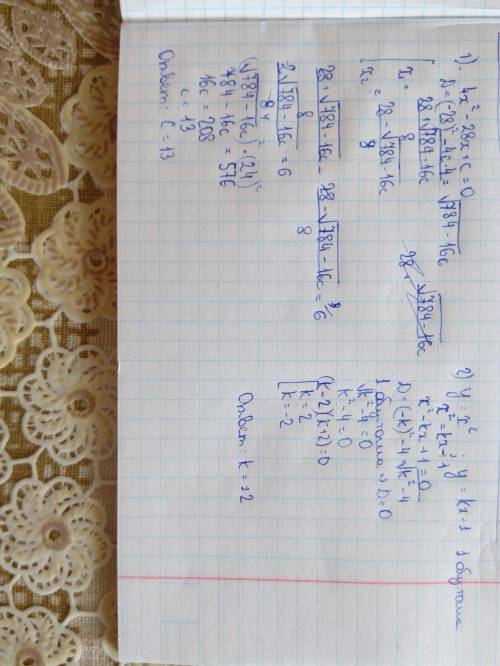 1). 4x² - 28x + c = 0
D = (-28)² - 4c·4 = √784 - 16c
x₁ = (28 + √784 - 16c) / 8
x₂ = (28 - √784 - 16c) / 8
(28 + √784 - 16c) / 8 - (28 - √784 - 16c) / 8 = 6
2√784 - 16c / 8 4 = 6
(√784 - 16c)² = (24)²
784 - 16c = 576
16c = 208
c = 13
Ответ: c = 13
2) y = x² ; y = kx - 1
x² = kx - 1
x² - kx + 1 = 0
D = (-k)² - 4 = √k² - 4
D = 0
√k² - 4 = 0
k² - 4 = 0
(k - 2)(k + 2) = 0
k = 2
k = -2
Ответ: k = ±2